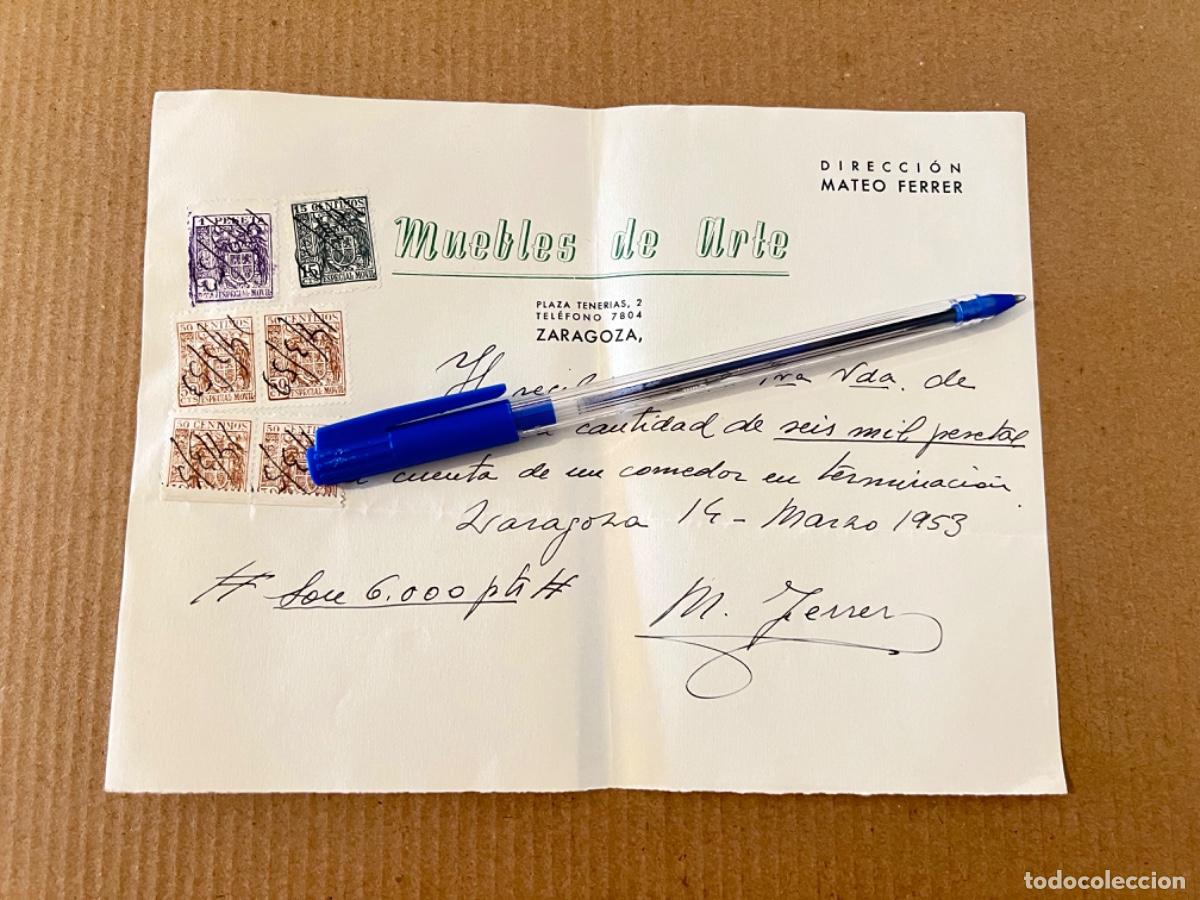 DIRECCIÓN
MATEO FERRER
Muebles de Arte
PLAZA TENERIAS, 2
TELÉFONO 7804
ZARAGOZA,
1 PESETA
ESPECIAL MOVIL
15 CENTIMOS
15
ESPECIAL MOVIL
50 CENTIMOS
CTS ESPECIAL MOVIL
50 CENTIMOS
CTS ESPECIAL MOVIL
50 CENTIMOS
50 CENTIMOS
Vda. de
cantidad de seis mil pesetas
cuenta de un comedor en terminación
Zaragoza 14 - Marzo 1953
# Son 6.000 pts #
M. Ferrer
todocoleccion